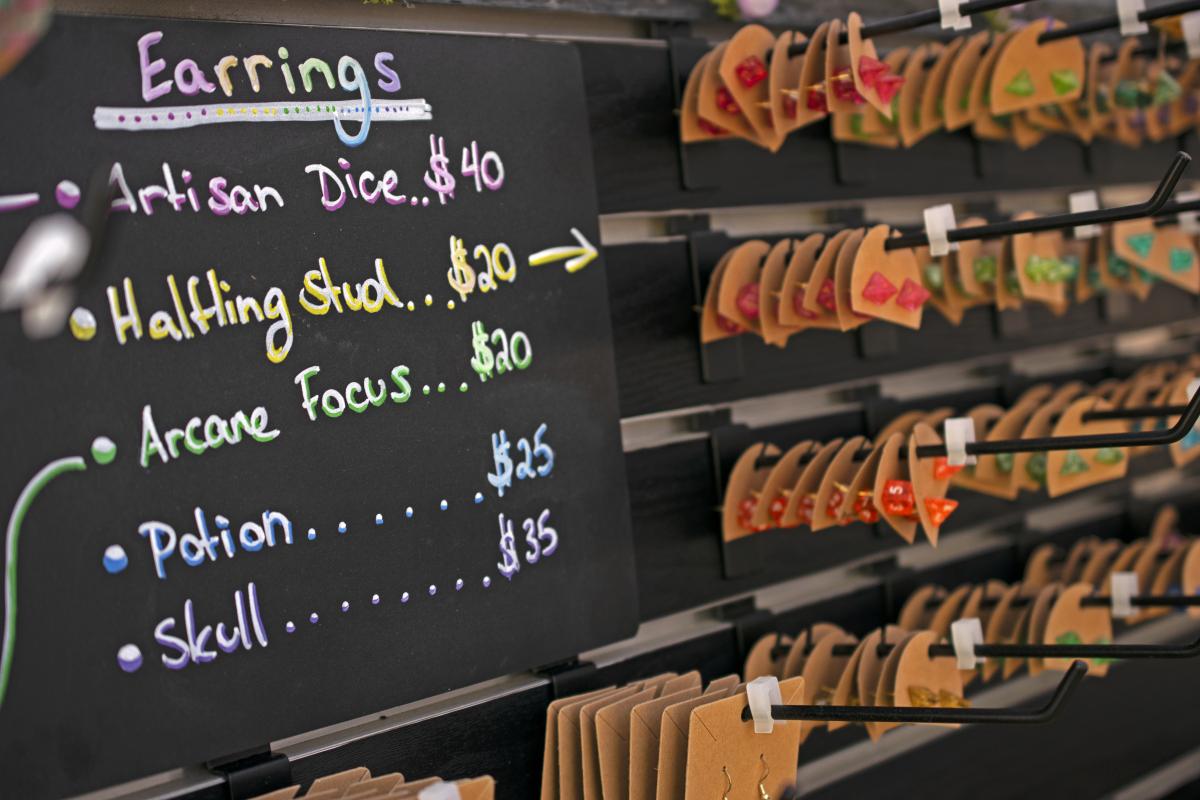 Earrings
Artisan Dice..$40
Halfling Stud...$20 →
Arcane Focus....$20
Potion......$25
Skull.......$35
5